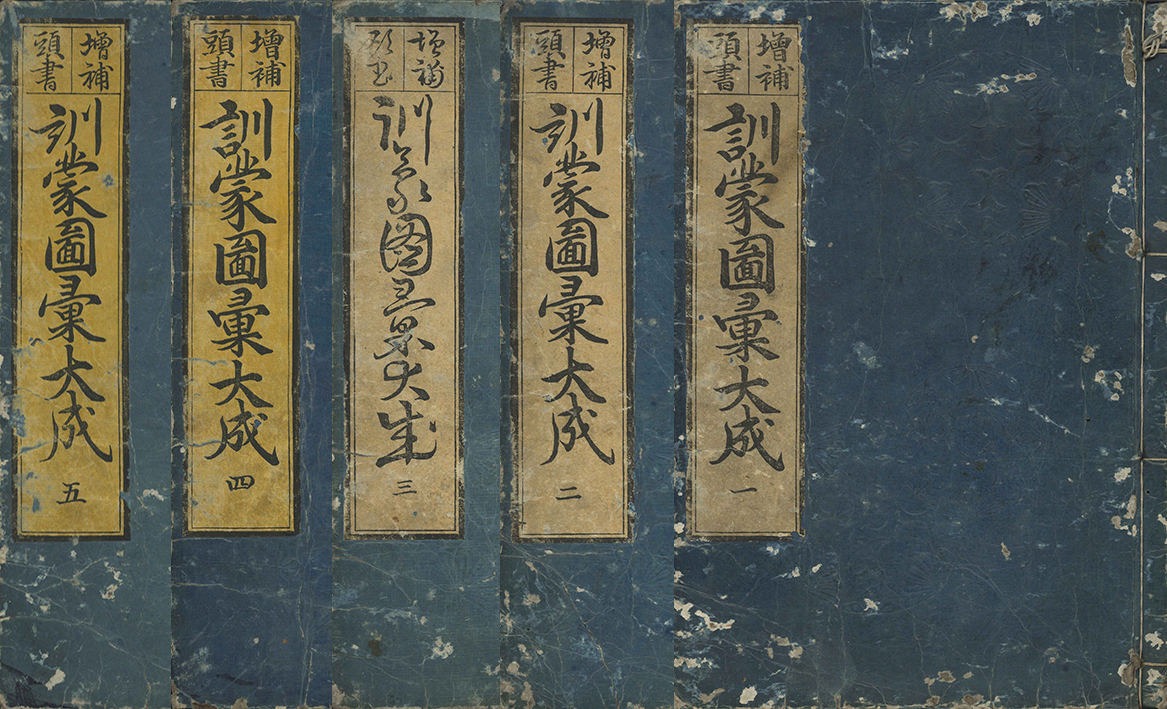 增補
頭書
訓蒙圖彙大成
一
增補
頭書
訓蒙圖彙大成
二
增補
頭書
訓蒙圖彙大成
三
增補
頭書
訓蒙圖彙大成
四
增補
頭書
訓蒙圖彙大成
五